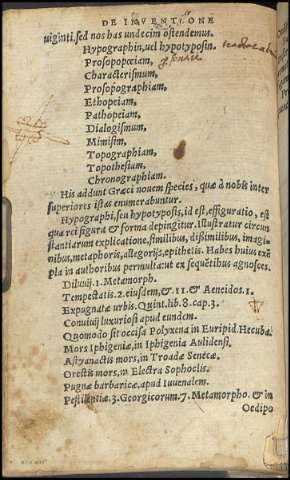 DE INVENTIONE
uiginti, sed nos has undecim ostendemus.
Hypographin, uel hypotyposin.
Prosopopœiam,
Characterismum,
Prosopographiam,
Ethopeiam,
Pathopeiam,
Dialogismum,
Mimisim,
Topographiam,
Topothesiam,
Chronographiam.
His addunt Græci nouem species, quæ à nobis inter
superiores istas enumerabuntur.
Hypographi, seu hypotyposis, id est, effiguratio, est
qua rei figura & forma depingitur. Illustratur circun
stantiarum explicatione, similibus, dißimilibus, imagi
nibus, metaphoris, allegorijs, epithetis. Habes huius exẽ
pla in authoribus permulta: ut ex sequẽtibus agnosces.
Diluuij. 1. Metamorph.
Tempestatis. 2. eiusdem, & . 11. & Aeneidos. 1.
Expugnatæ urbis. Quint. lib. 8. cap. 3.
Conuiuij luxuriosi apud eundem.
Quomodo sit occisa Polyxena in Euripid. Hecuba.
Mors Iphigeniæ, in Iphigenia Aulidensi.
Astyanactis mors, in Troade Senecæ.
Orestis mors, in Electra Sophoclis.
Pugnæ barbaricæ, apud Iuuenalem.
Pestilentiæ. 3. Georgicorum. 7. Metamorpho. & in
Oedipo